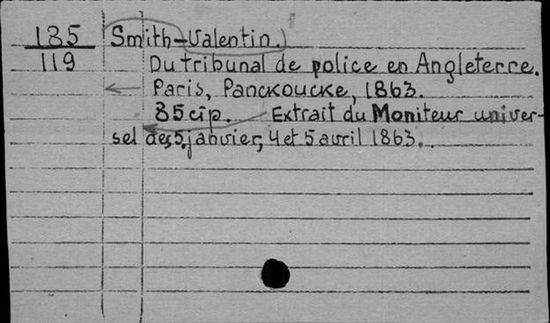 185 Smith-Valentin.)
119 Du tribunal de police en Angleterre.
Paris, Panckoucke, 1863.
85 cтр. Extrait du Moniteur univer-
sel des 5 janvier, 4 et 5 avril 1863.